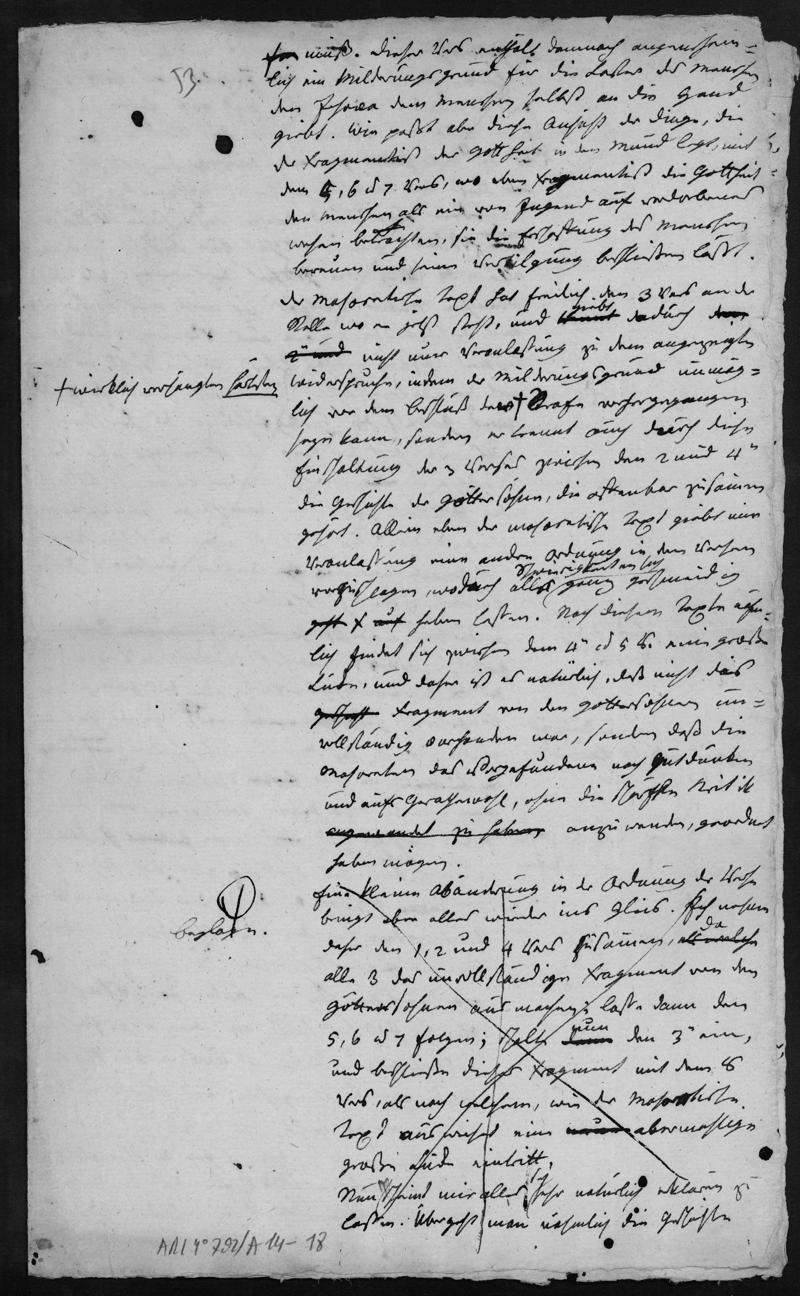 53.
muß. Dieser Vers enthält demnach augenschein=
lich ein Milderungsgrund für die Laster der Menschen
den Jehova dem Menschen selbst an die Hand
giebt. Wie paßt aber diese Ansicht der Dinge, die
der Fragmentist der Gottheit in den Mund legt, mit
dem 5, 6 u 7 Vers, wo eben Fragmentist die Gottheit
den Menschen als ein von Jugend auf verdorbenes
Wesen betrachten, sie die Erschaffung des Menschen
bereuen und seine Vertilgung beschließen läßt.
Der Masoretische Text hat freilich den 3 Vers an der
Stelle wo er jetzt steht, und giebt dadurch
nicht nur Veranlassung zu dem angezeigten
Widerspruche, indem der Milderungsgrund unmög=
lich vor dem Beschluß der † Strafe vorhergegangen
† wirklich verhängten
seyn kann, sondern er trennt auch durch diese
Einschaltung des 3 Verses zwischen dem 2 und 4n
die Geschichte der Göttersöhne, die offenbar zusamen
gehört. Allein eben der masoretische Text giebt mir
Veranlassung eine andere Ordnung in den Versen
vorzuschlagen, wodurch alle Schwierigkeiten sich ganz geschmeidig
heben lassen. Nach diesem Texte nähm=
lich findet sich zwischen dem 4n u 5 V. eine große
Lücke, und daher ist es natürlich, daß nicht das
Fragment von den Göttersöhnen un=
vollständig vorhanden war, sondern daß die
Masoreten das Vorgefundene nach Gutdünken
und aufs Gerathewohl, ohne die Kritik
angewendet zu haben anzuwenden, geordnet
haben mögen.
Eine kleine Abänderung in der Ordnung der Verse
bringt aber alles wieder ins Gleis. Ich nehme
daher den 1, 2 und 4 Vers zusamen, da
alle 3 das unvollständige Fragment von den
Göttersöhnen aus machen; lasse dann den
5, 6 u 7 folgen; schalte nun den 3n ein,
und beschließe dieses Fragment mit dem 8
Vers, als nach welchem, wie der Masoretische
Text ausweiset eine abermahlige
große Lücke eintritt.
Nun scheint mir alles sich sehr natürlich erklären zu
lassen. Übergeht man nähmlich die Geschichte
14-18